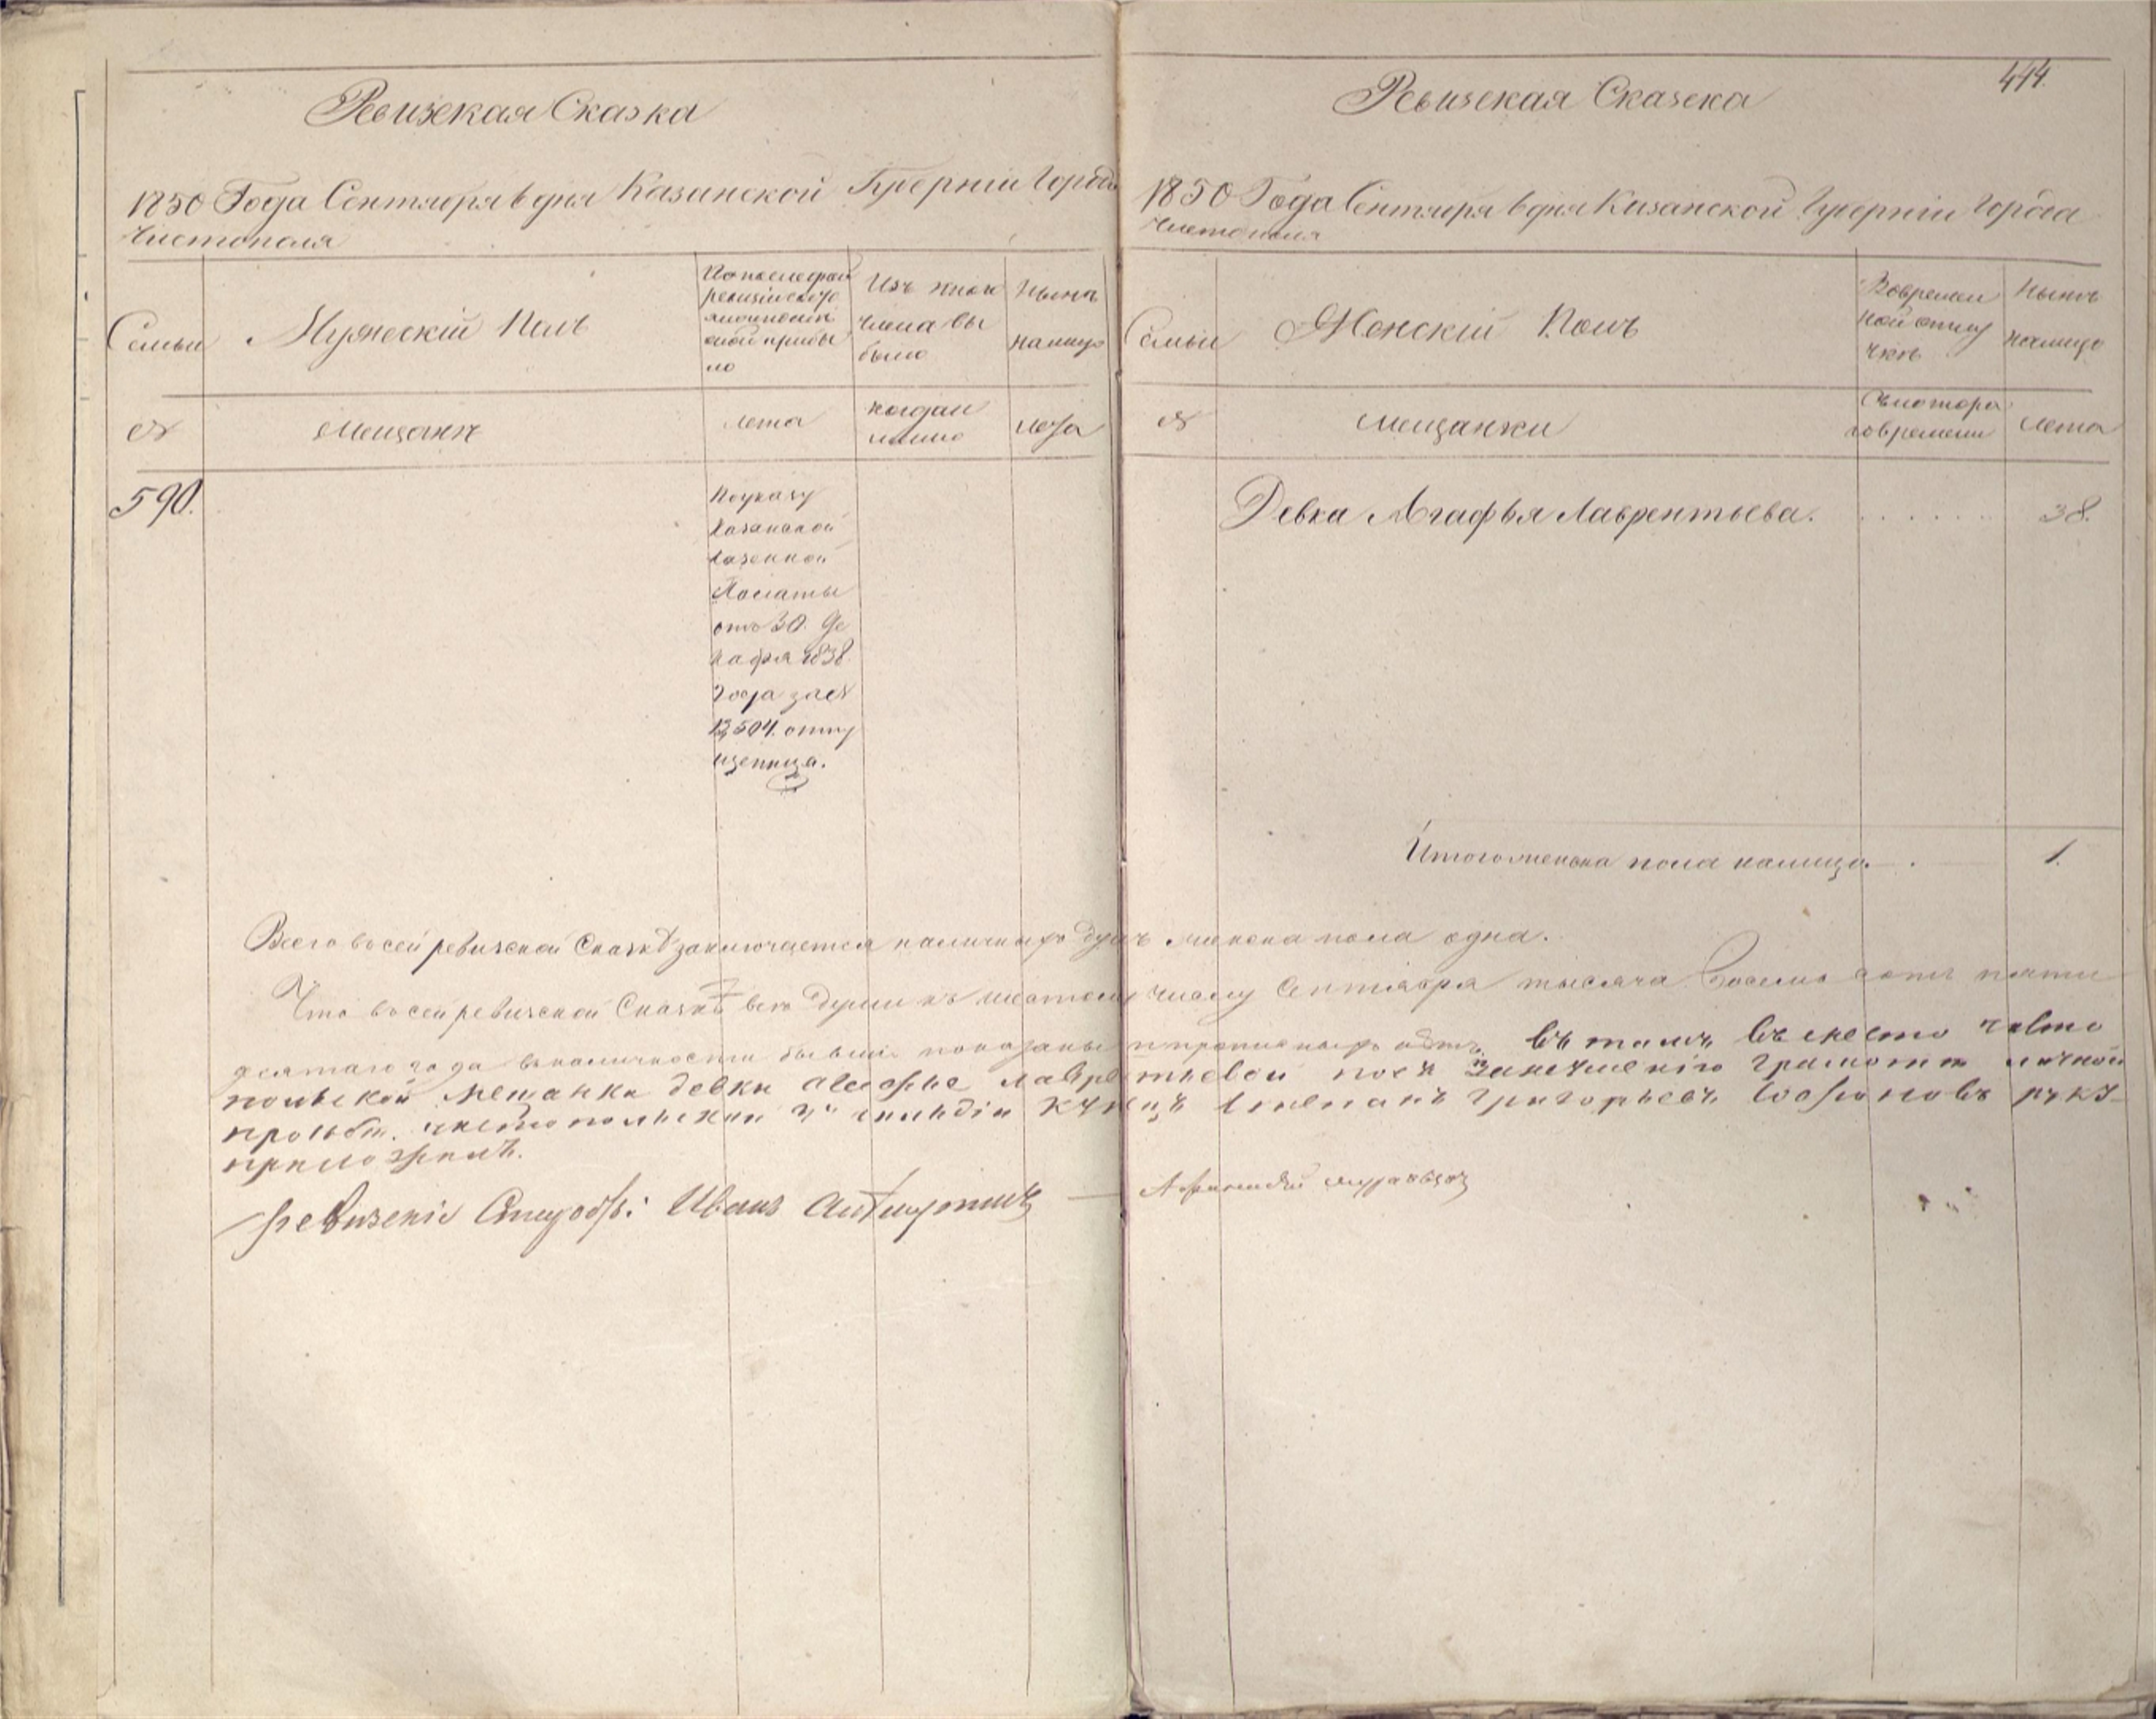 Ревизская Сказка
1850 Года Сентября 6 дня Казанской Губерніи Города
Чистополя
Семьи
Мужескій Полъ
По последней
ревизіи состо
ло и после
оной прибы
ло
Изъ того
числа вы
было
Ныне
налицо
№
Мещане
лета
когда и
лета
590.
По указу
Казанской
Казенной
Палаты
отъ 30. Де
кабря 1838
года за №
13,504. отпу
щенница.
414.
Ревизская Сказка
1850 Года Сентября 6 дня Казанской Губерніи Города
Чистополя
Семьи
Женскій Полъ
Во времен
ной отлу
чке
Ныне
налицо
№
Мещанки
Съ котора
го времени
лета
Девка Агафья Лаврентьева. . . . . . . 38.
Итого женска пола налицо . 1.
Всего в сей ревизской Сказкѣ заключается наличныхъ душъ женска пола одна.
Что в сей ревизской Сказкѣ все души къ шестому числу Сентября тысяча восемь сотъ пяти
десятаго года в наличности бывшіе показаны и прописныхъ нѣтъ. Въ томъ въ место чисто
польской мещанки девки Агафье Лаврентьевой по ея за неумѣнію грамоте личной
прозьбе. чистопольскии 3й гильдіи Купецъ Степанъ Григорьевъ Сафроновъ руку
приложилъ.
Ревизскіе Иванъ